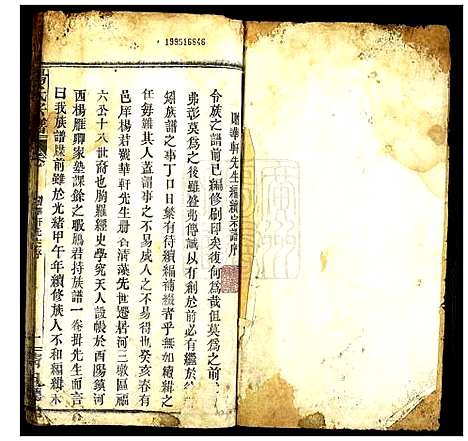 199516846
華軒先生編續宗譜序
令族之譜前已編修刷印矣復何為哉但莫為之前
弗彰莫為之後雖盛弗傳誠以族之不可無譜
矧族譜之事丁口日繁有待續編補綴者乎無如續緝之
任每難其人蓋謂事之不易成人之不易得也癸亥春有
邑庠楊君號華軒先生冊名清漢先世遷居河三墩區福
六公十八世裔也胸羅經史學究天人設帳於酉陽鎮河
西楊雁卿家塾課餘之暇鴈君持族譜一卷拱先生而言
曰我族譜牒前雖於光緒甲午年續修族人不和編緝未